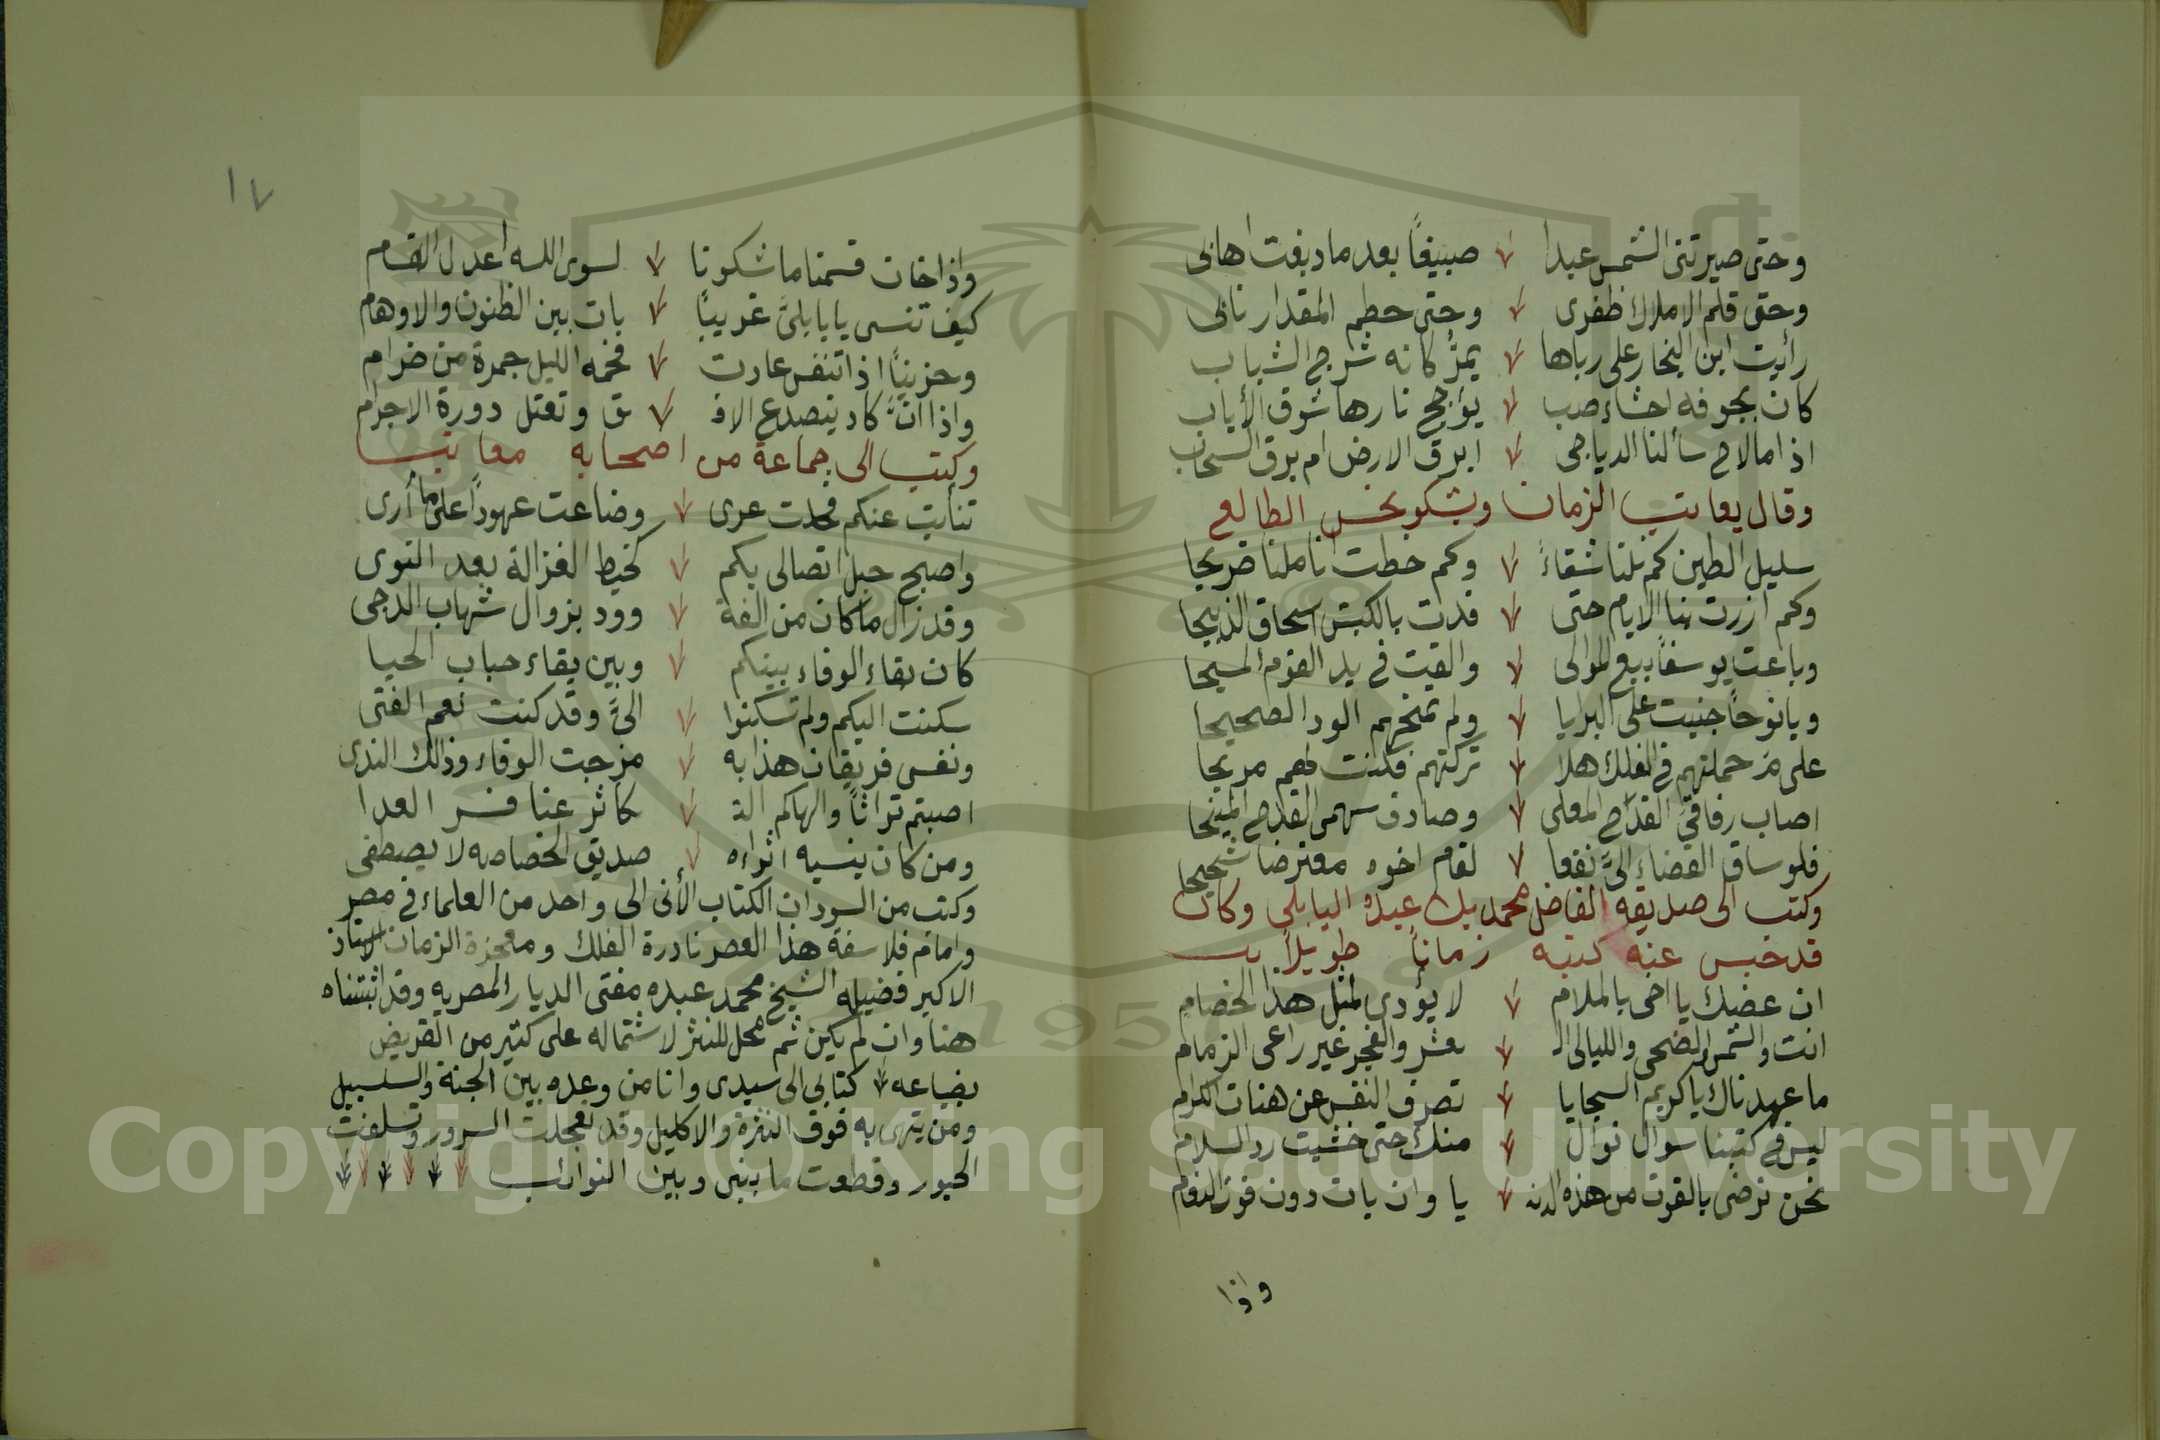 وحتى صيرتنى الشمس عبدا صبيغاً بعد ما دبغت اهابى
وحتى قلم الاملاق ظفرى وحتى حطم المقدار نابى
رأيت ابن البخار على رباها يمرّ كانه شرخ الشباب
كان بجوفه احشاء صب يؤجج نارها شوق الأياب
اذا ما لاح سألنا الدياجى ابرق الارض ام برق السحاب
وقال يعاتب الزمان ويشكو نحس الطالع
سليل الطين كم نلنا شقاءً وكم خطت اناملنا ضريحا
وكم ازرت بنا الايام حتى فدت بالكبش اسحاق الذبيحا
وباعت يوسفاً بيع الموالى والقت فى يد القوم المسيحا
ويا نوحاً جنيت على البرايا ولم تمنحهم الود الصحيحا
على مَ حملتهم فى الفلك هلا تركتهم فكنت لهم مريحا
اصاب رفاقىَ القدّح المعلى وصادف سهمى القدح المنيحا
فلو ساق القضاء الىّ نفعا لقام اخوه معترضا شحيحا
وكتب الى صديقه الفاضل محمد بك عبده البابلى وكان
قد حبس عنه كتبه زماناً طويلاً
ان عضبك يا اخى بالملام لا يؤدى لمثل هذا الخصام
انت والشمس والضحى والليالى الـ ـعشر والفجر غير راعى الزمام
ما عهدناك يا كريم السجايا تصرف النفس عن هنات الكرام
ليس فى كتبنا سوال نوال منك حتى خشيت رد السلام
نحن نرضى بالقوت من هذه الدنـ يا وان بات دون قوت النعام
واذا
١٧
واذا خان قسمنا ما شكونا لسوى الله اعدل القسام
كيف تنسى يا بابلىّ غريباً بات بين الظنون والاوهام
وحزيناً اذا تنفس عادت فحمه الليل جمرة من ضرام
واذا انّ كاد يتصدع الافـ ـق وتعتل دورة الاجرام
وكتب الى جماعة من اصحابه معاتبا
تنأيت عنكم فحلت عرى وضاعت عهوداً على ما أرى
واصبح حبل اتصالى بكم كخيط الغزالة بعد النوى
وقد زال ما كان من الفة وود بزوال شهاب الدجى
كان بقاء الوفاء بينكم وبين بقاء حباب الحيا
سكنت اليكم ولم تسكنوا الىّ وقد كنت نعم الفتى
ونفسى فريقان هذا به مزجت الوفاء وذاك الندى
اصبتم تراثاً والهاكم التـ ـكاثر عنا فسر العدا
ومن كان ينسيه اثراءه صديق الخصاصه لا يصطفى
وكتب من السودان الكتاب الأتى الى واحد من العلماء فى مصر
وامام فلاسفة هذا العصر نادرة الفلك ومعجزة الزمان الاستاذ
الاكبر فضيله الشيخ محمد عبده مفتى الديار المصريه وقد اثبتناه
هنا وان لم يكن ثم محل للنثر لاشتماله على كثير من القريض
بضياعه كتابى الى سيدى وانا من وعده بين الجنة والسلسبيل
ومن تيهى به فوق النثرة والاكليل وقد تعجلت السرور وتسلفت
الحبور وقطعت ما بينى وبين النوائب
Copyright © King Saud University
1957